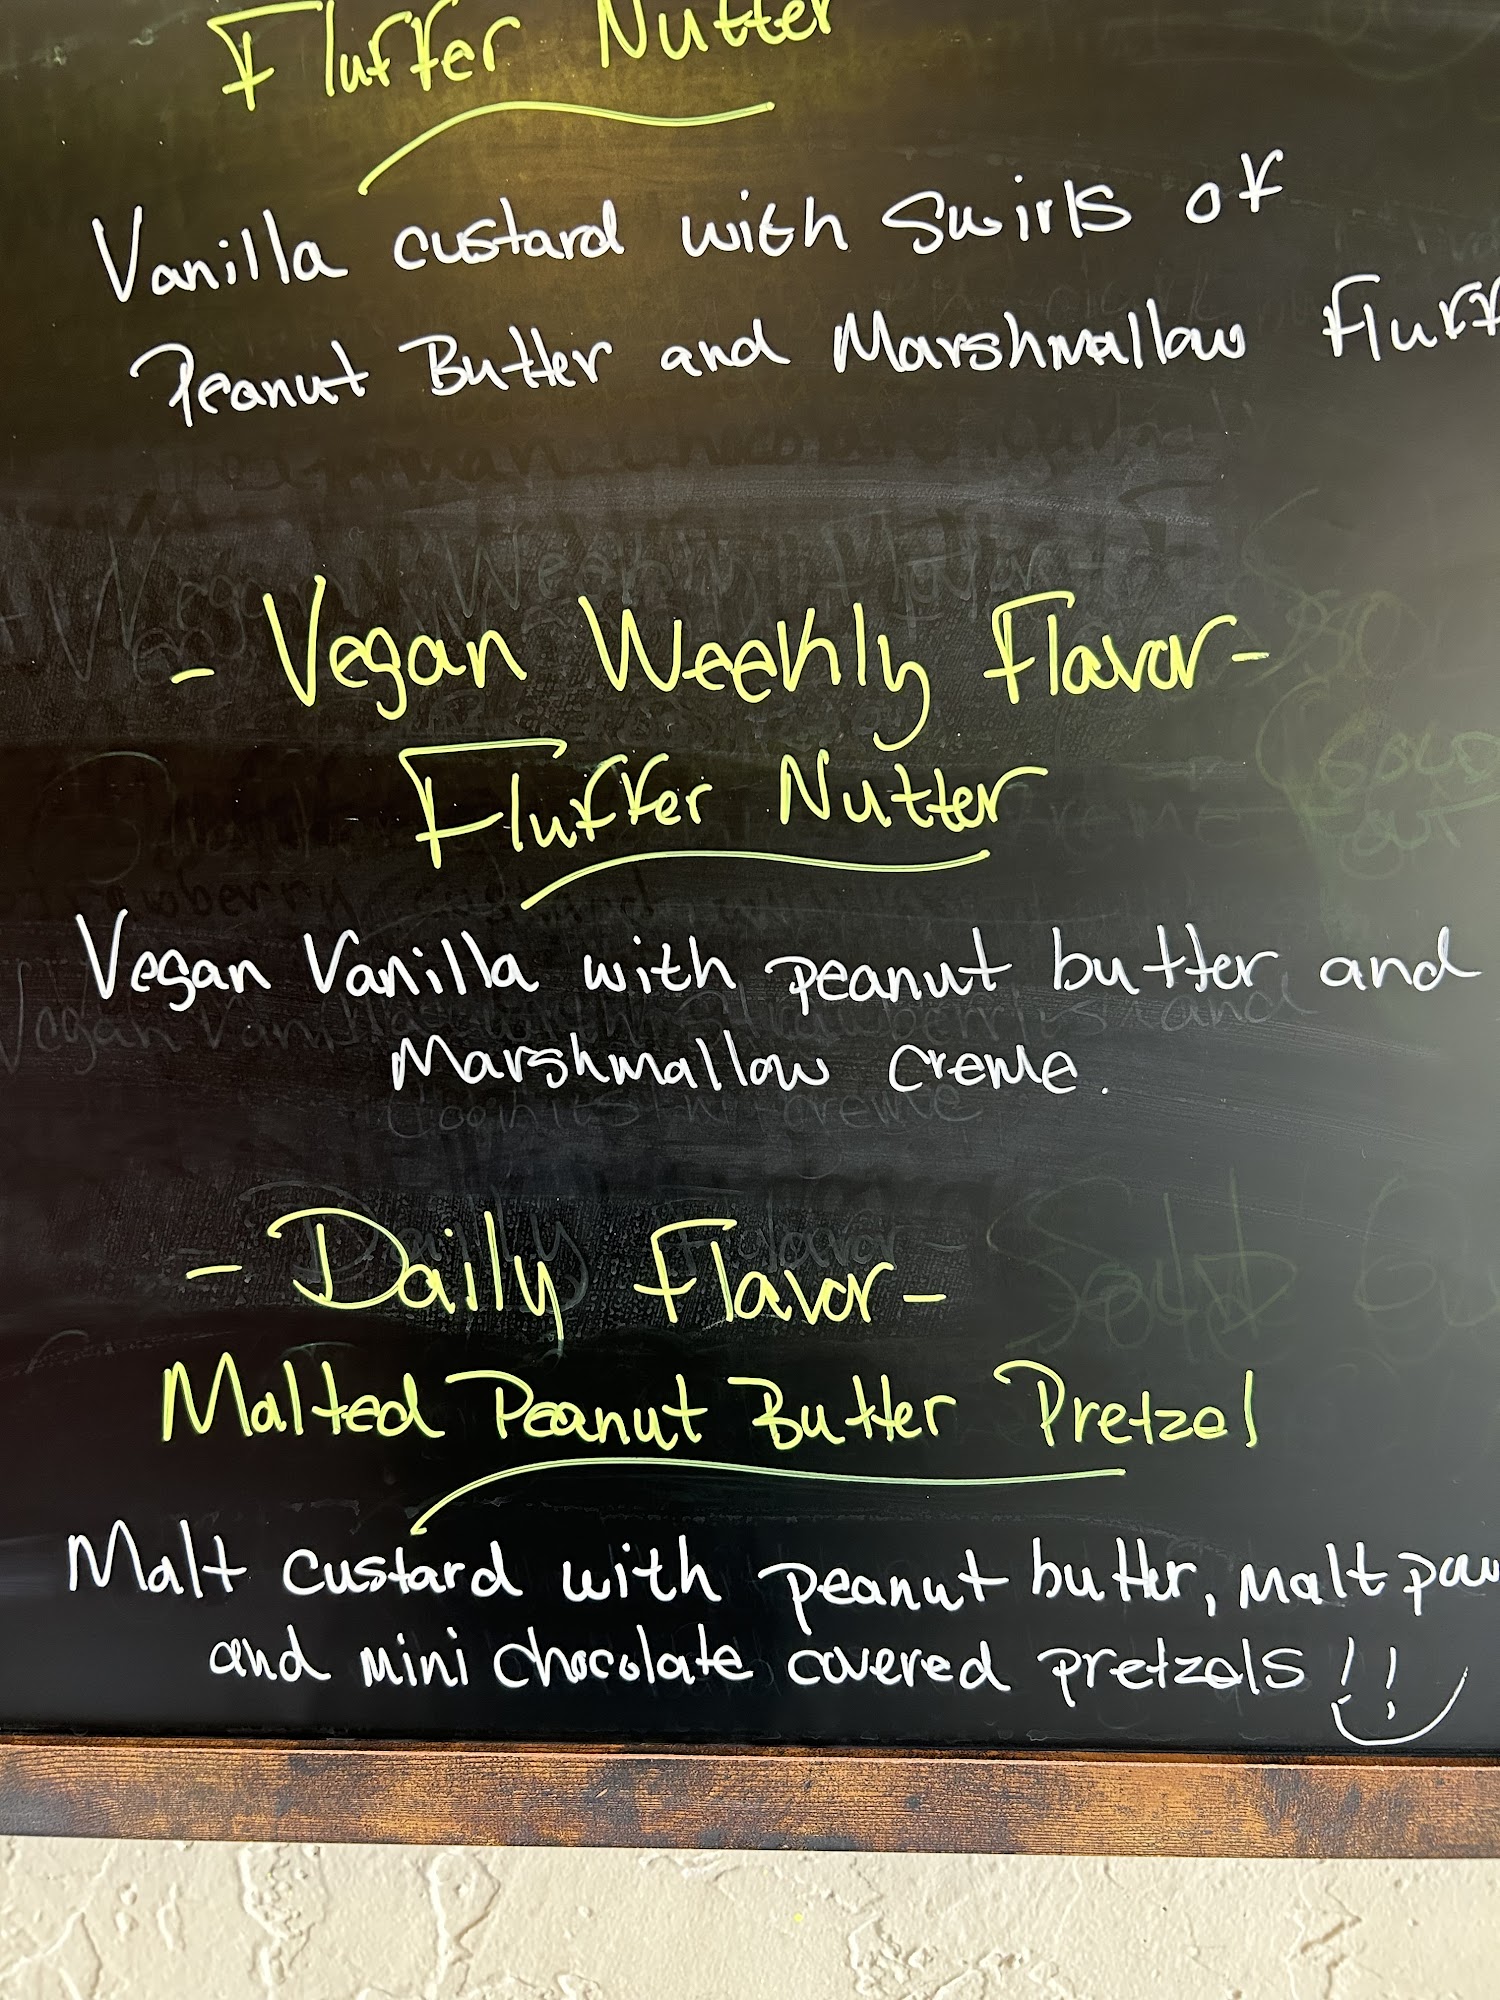 Fluffer Nutter
Vanilla custard with Swirls of
Peanut Butter and Marshmallow Fluff
- Vegan Weekly Flavor -
Fluffer Nutter
Vegan Vanilla with peanut butter and
Marshmallow creme.
- Daily Flavor -
Malted Peanut Butter Pretzel
Malt custard with peanut butter, malt
and mini chocolate covered pretzels !!